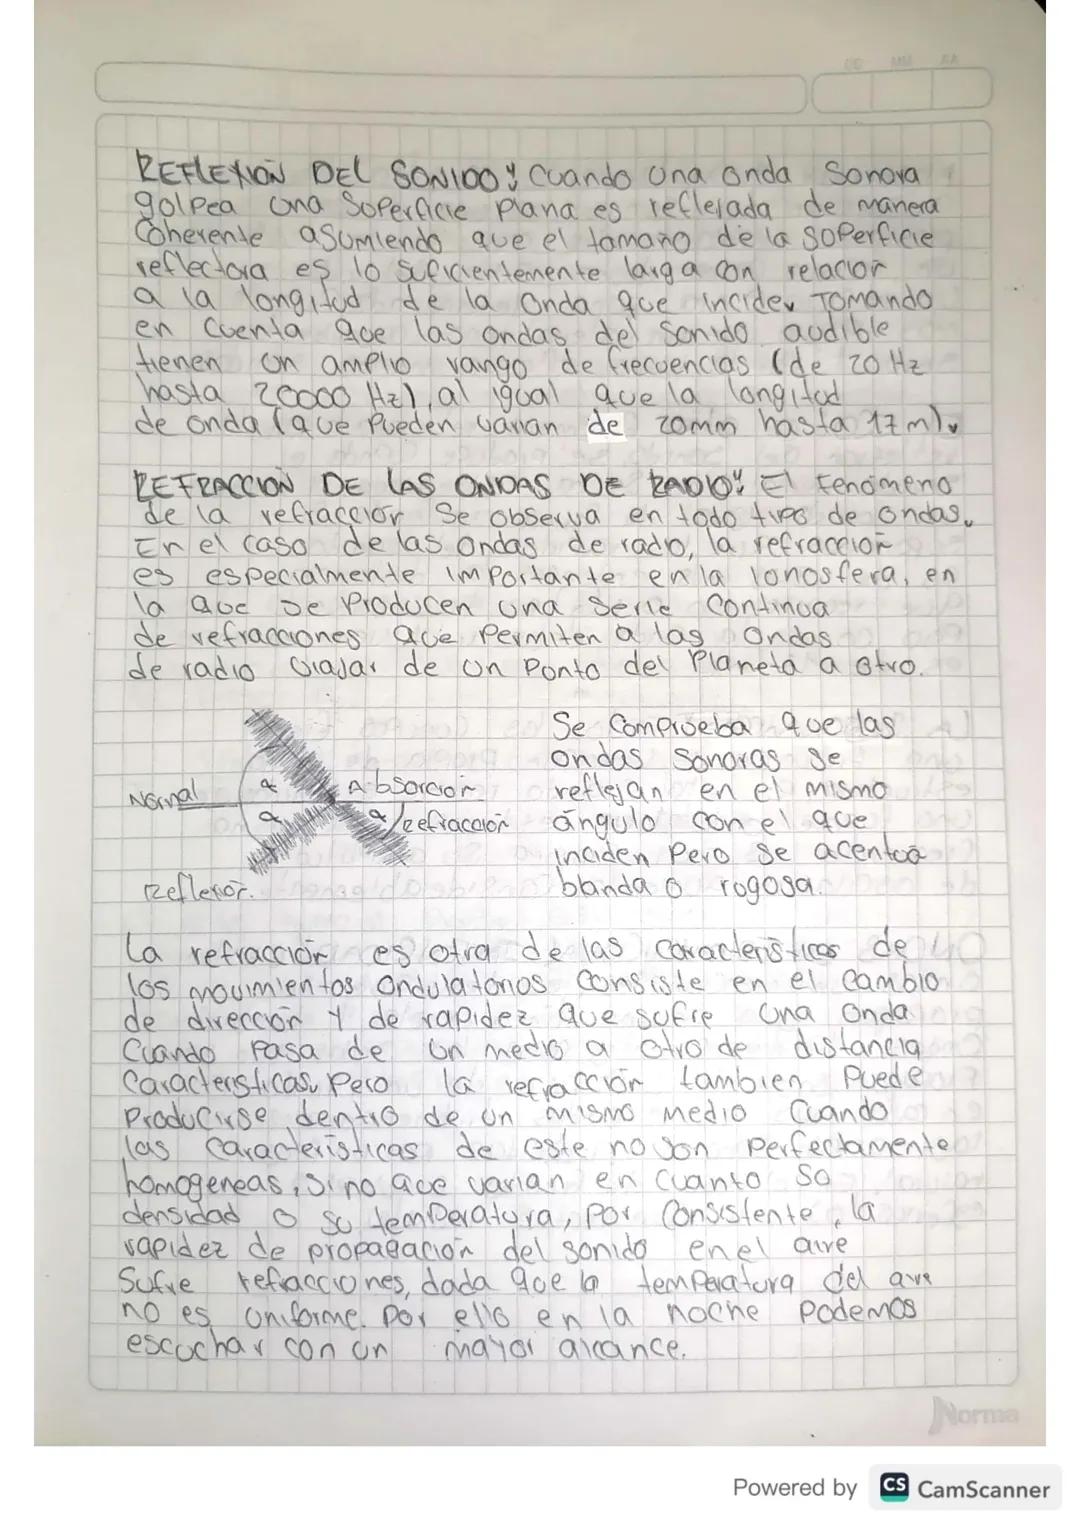 DD MM AA
REFLEXIÓN DEL SONIDO: Cuando una onda Sonora
golpea una Superficie plana es reflejada de manera
Coherente asumiendo que el tamaño de la superficie
reflectora es lo suficientemente larga con relación
a la longitud de la onda que incide. Tomando
en cuenta que las ondas del sonido audible
tienen un amplio rango de frecuencias (de 20 Hz
hasta 20000 Hz), al igual que la longitud
de onda (que pueden varian de 20mm hasta 17m).
REFRACCIÓN DE LAS ONDAS DE RADIO: El fenómeno
de la refracción se observa en todo tipo de ondas.
En el caso de las ondas de radio, la refracción
es especialmente importante en la ionosfera, en
la que se producen una serie continua
de refracciones que permiten a las ondas
de radio viajar de un punto del planeta a otro.
Normal
α
α
Absorción
α
refracción
Reflexión.
Se Comprueba que las
ondas sonoras se
reflejan en el mismo
ángulo con el que
inciden pero se acentua
blanda o rugosa.
La refracción es otra de las características de
los movimientos ondulatorios consiste en el cambio
de dirección y de rapidez que sufre una onda
cuando pasa de un medio a otro de distancia
características. Pero la refracción tambien puede
producirse dentro de un mismo medio cuando
las características de este no son perfectamente
homogeneas, sino que varian en cuanto So
densidad o su temperatura, por consistente, la
rapidez de propagación del sonido en el aire
sufre refracciones, dada que la temperatura del aire
no es uniforme. Por ello en la noche podemos
escuchar con un mayor alcance.
Norma
Powered by CS CamScanner